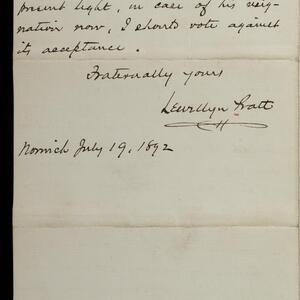 present light, in case of his resig-
nation now, I should vote against
its acceptance.
Fraternally yours
Lewellyn Pratt
Norwich July 19, 1892